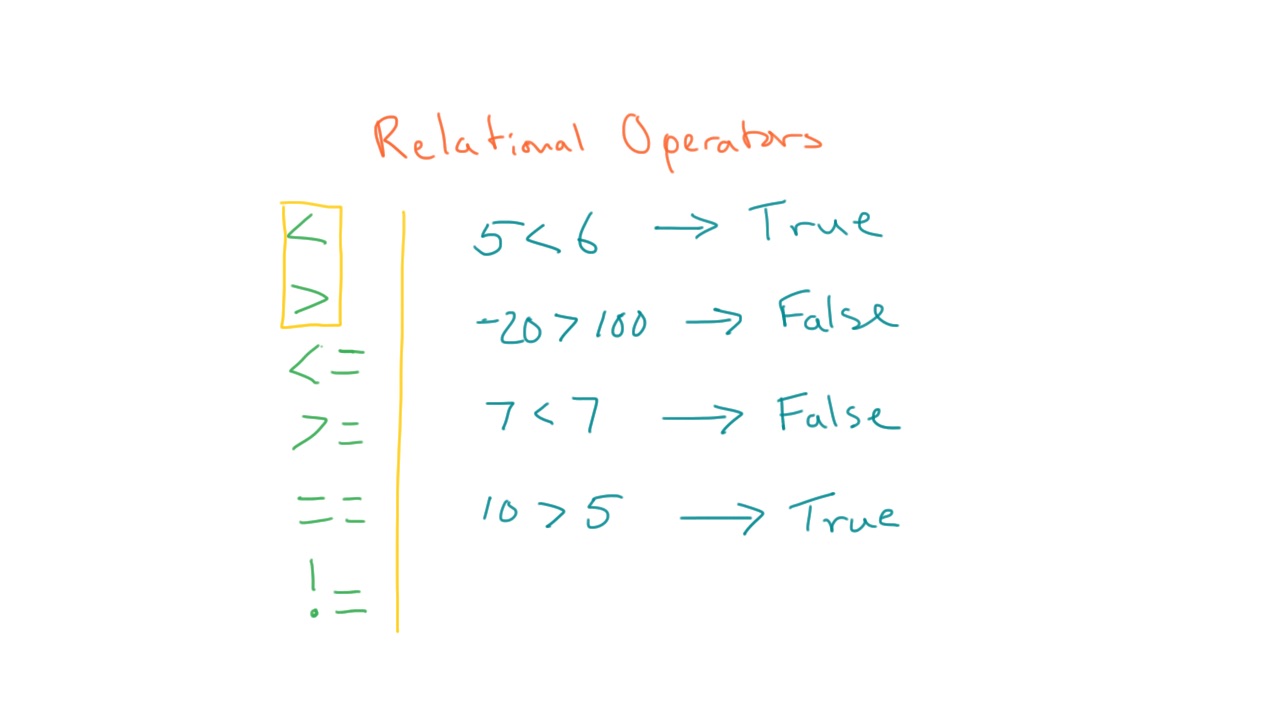 Relational Operators
<
>
<=
>=
==
!=
5 < 6 → True
-20 > 100 → False
7 < 7 → False
10 > 5 → True